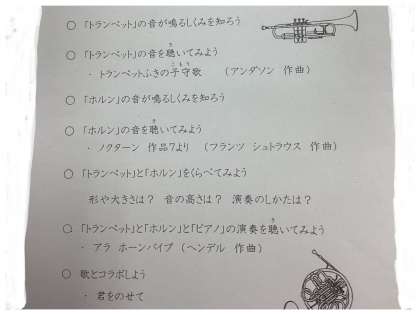 ○ 「トランペット」の音が鳴るしくみを知ろう
○ 「トランペット」の音を聴いてみよう
・ トランペットふきの子守歌 （アンダソン 作曲）
○ 「ホルン」の音が鳴るしくみを知ろう
○ 「ホルン」の音を聴いてみよう
・ ノクターン 作品7より （フランツ シュトラウス 作曲）
○ 「トランペット」と「ホルン」をくらべてみよう
形や大きさは？ 音の高さは？ 演奏のしかたは？
○ 「トランペット」と「ホルン」と「ピアノ」の演奏を聴いてみよう
・ アラ ホーンパイプ （ヘンデル 作曲）
○ 歌とコラボしよう
・ 君をのせて